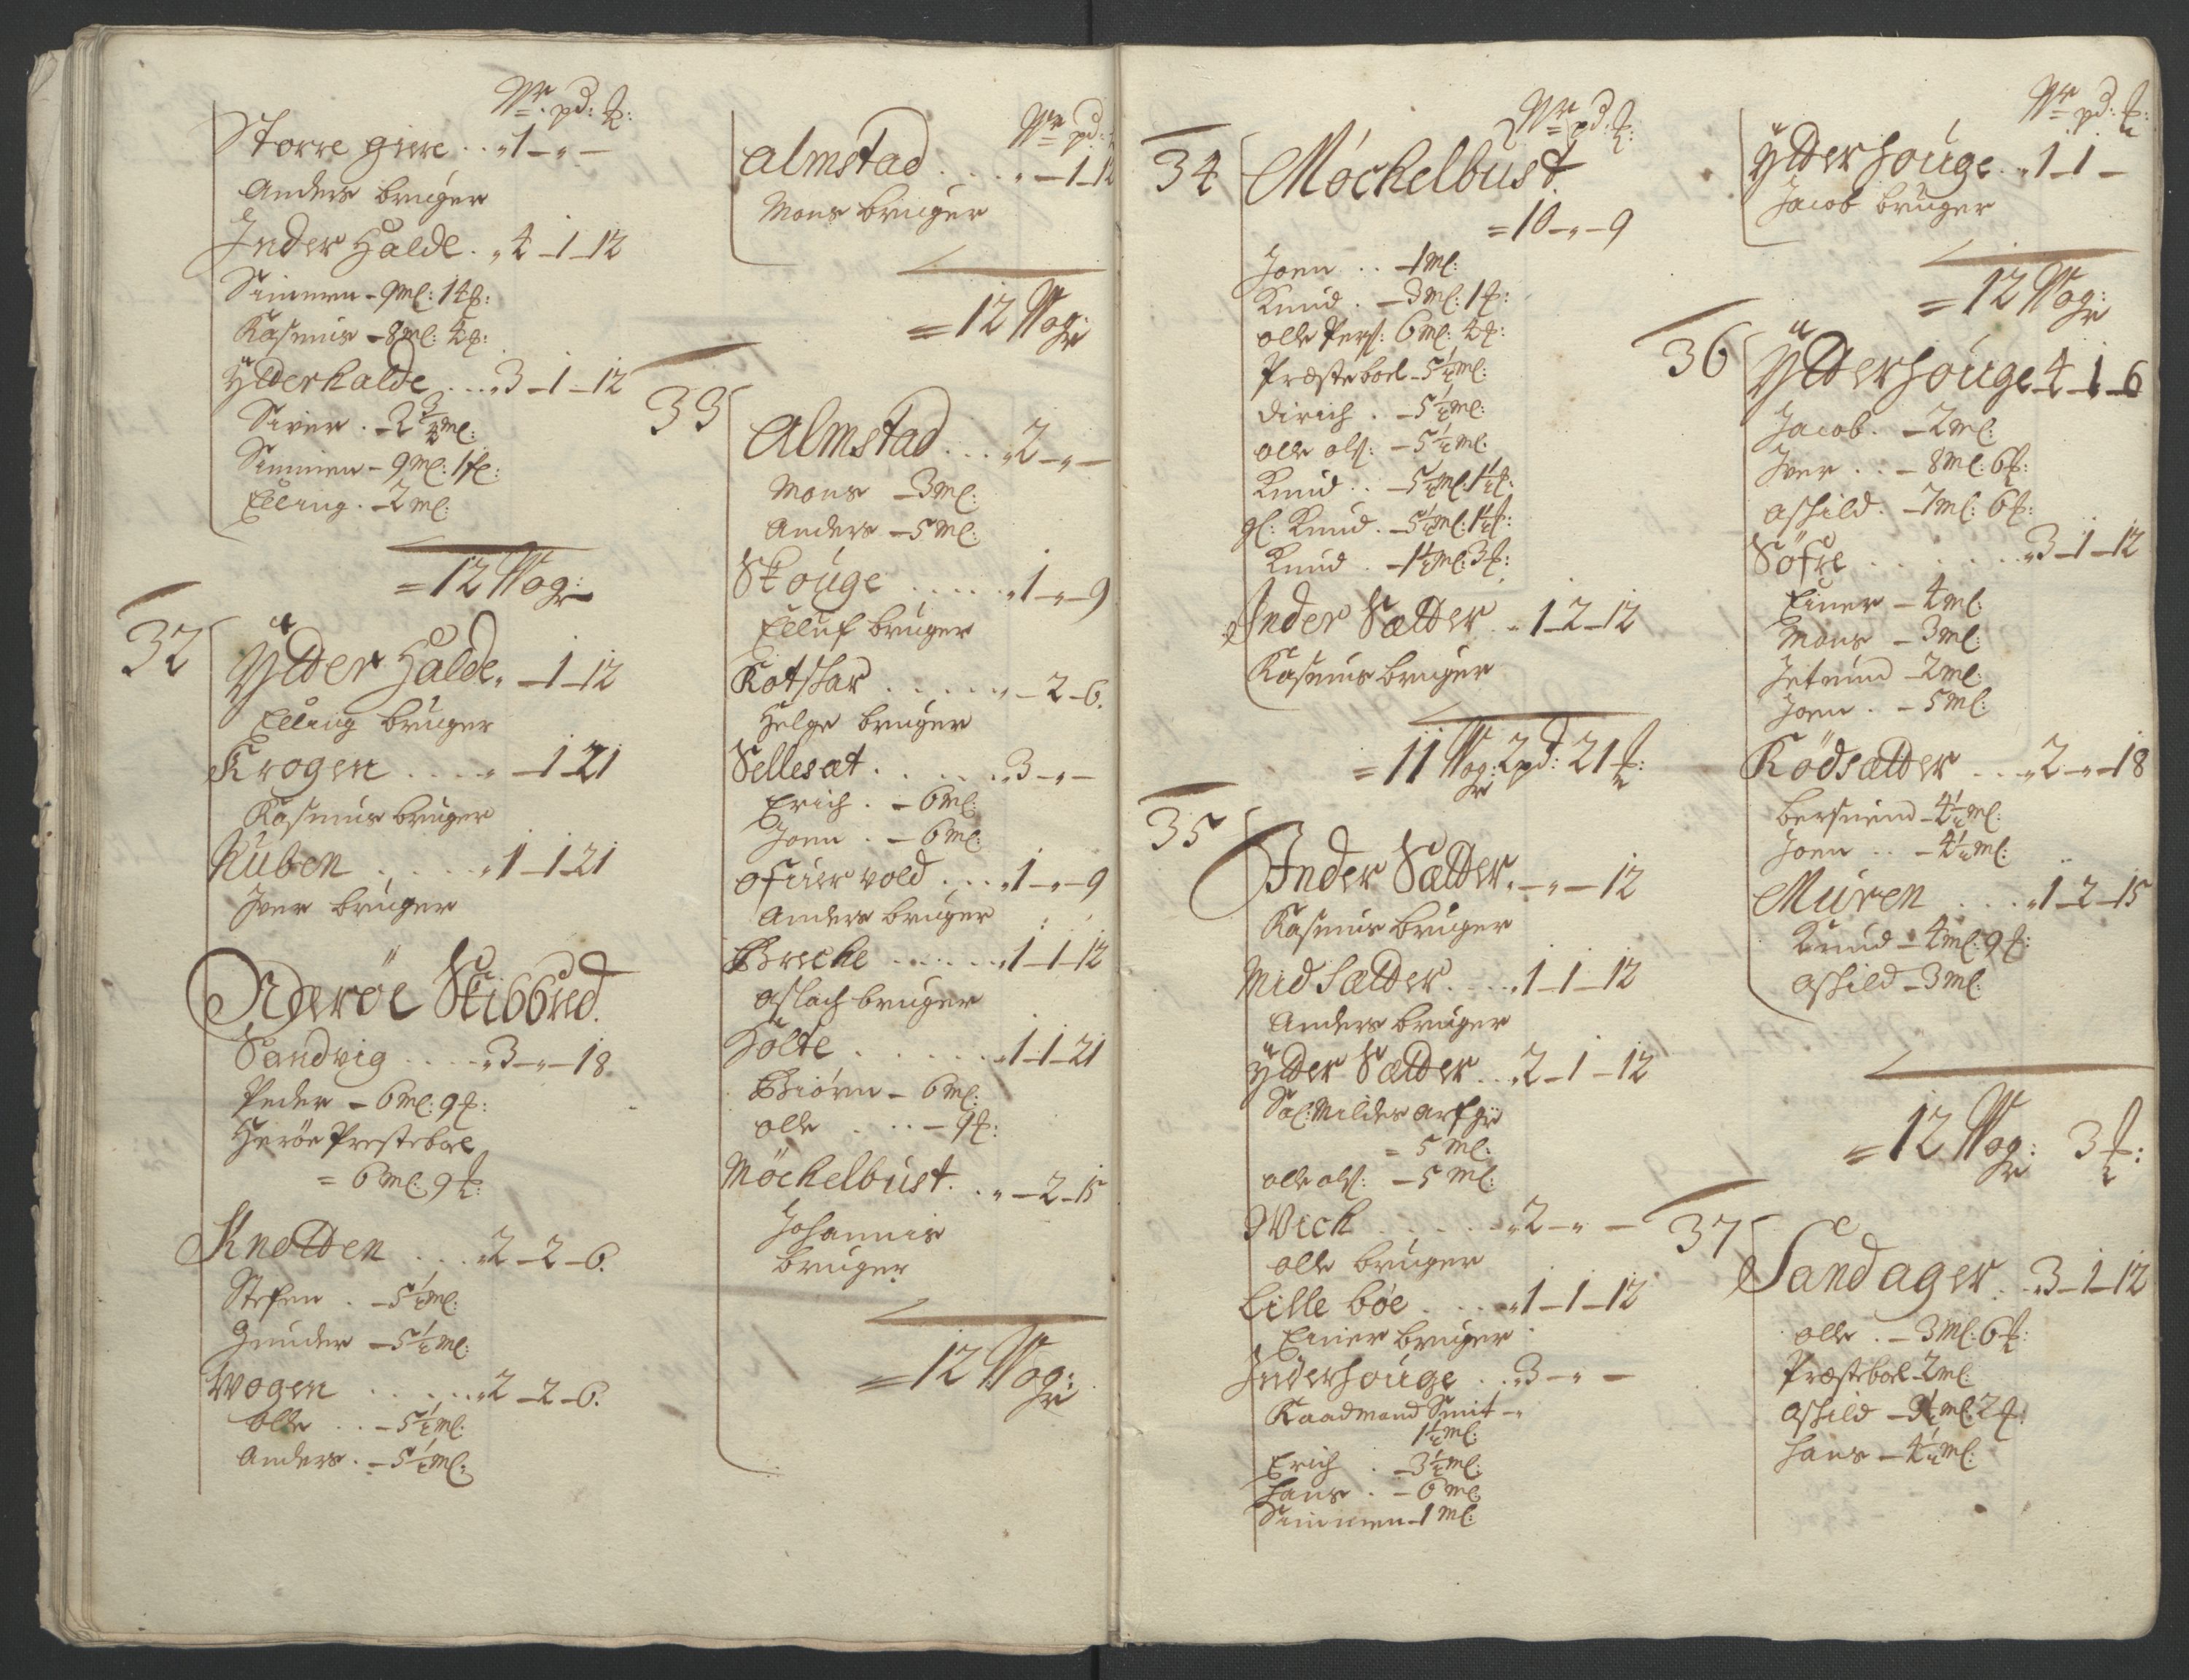 Wr: pd: ₤:
Storre giere . . „ 1 – „ –
Anders bruger
Inder Halde . „ 4 – 1 – 12
Simmen – 9 ml: 14 ₤:
Rasmus – 8 ml: 4 ₤:
Ÿtterhalde . . . „ 3 – 1 – 12
Siver . – 2 3/4 ml:
Simmen – 9 ml: 1 ₤:
Elling . – 2 ml:
= 12 Wog:
32
Ÿtter Halde . – 1 – 12
Elling bruger
Krogen . . . . „ – 1 – 21
Rasmus bruger
Ruben . . . . . „ 1 – 1 – 21
Iver bruger
Neröe Skibbred.
Sandvig . . . . „ 3 – „ – 18
Peder – 6 ml: 9 ₤:
Herøe Presteboel
= 6 ml: 9 ₤:
Knotten . . . „ 2 – 2 – 6.
Stefen . – 5 1/2 ml:
Gunder – 5 1/2 ml:
Wogen . . . . . „ 2 – 2 – 6.
olle . . – 5 1/2 ml:
Anders . – 5 1/2 ml:
Wr pd:
Almstad . . . . „ – 1 – 12
Mons bruger
= 12 Wog:
33
Almstad . . . „ 2 – „ –
Mons – 3 ml:
Anders – 5 ml:
Skouge . . . . . „ 1 – „ – 9
Elluf bruger
Rotshar . . . . . „ – 2 – 6.
Helge bruger
Sellesæt . . . . . „ 3 – „ –
Erich . – 6 ml:
Joen . – 6 ml:
ofuer vold . . . „ 1 – „ – 9
Anders bruger
Breche . . . . . „ 1 – 1 – 12
Aslach bruger
Holte . . . . . . „ 1 – 1 – 21
Biörn – 6 ml:
olle . . . – 9 ₤:
Möchelbust . . „ – 2 – 15
Johannis
bruger
= 12 Wog:
Wr pd: ₤:
34
Möchelbust.
= 10 – „ – 9
Joen . . – 1 ml:
Knud . – 3 ml: 1 ₤:
olle Pers: 6 ml: 4 ₤:
Præsteboel – 5 1/2 ml:
Dirich . – 5 1/2 ml:
olle ols: – 5 1/2 ml:
Knud . . – 5 1/2 ml: 1 1/2 ₤:
gl: Knud . – 5 1/2 ml: 1 1/2 ₤:
Knud . – 1 1/2 ml: 3 ₤:
Inder Sætter . „ 1 – 2 – 12
Rasmus bruger
= 11 Wog: 2 pd: 21 ₤:
35
Inder Sætter . – „ – 12
Rasmus bruger
Mid Sætter . . . „ 1 – 1 – 12
Anders bruger
Ÿtter Sætter . . „ 2 – 1 – 12
Sal: Milder arfgr
= 5 ml:
olle ols: – 5 ml:
Wick . . . . . . „ 2 – „ –
olle bruger
Lille böe . . . . „ 1 – 1 – 12
Einer bruger
Inderhouge . . „ 3 – „ –
Raadmand Smit – „
1 1/2 ml:
Erich . – 3 1/2 ml:
Hans . – 6 ml:
Simmen – 1 ml:
Wr pd: ₤:
Ÿtterhouge . . „ 1 – 1 –
Jacob bruger
= 12 Wog:
36
Ÿtterhouge 4 – 1 – 6
Jacob . – 2 ml:
Iver . . – 8 ml: 6 ₤:
Ashild . – 7 ml: 6 ₤:
Söfre . . . . . . „ 3 – 1 – 12
Einer – 4 ml:
Mons – 3 ml:
Jetmund – 2 ml:
Joen . – 5 ml:
Rödsætter . . „ 2 – „ – 18
Bersuend – 4 1/2 ml:
Joen . . – 4 1/2 ml:
Muren . . . . „ 1 – 2 – 15
Knud – 4 ml: 9 ₤:
Ashild – 3 ml:
= 12 Wog: 3 ₤:
37
Sandager . . „ 3 – 1 – 12
olle . – 3 ml: 6 ₤:
Præsteboel – 2 ml:
Ashild – 9 1/2 ml: 2 ₤:
Hans – 4 1/2 ml: